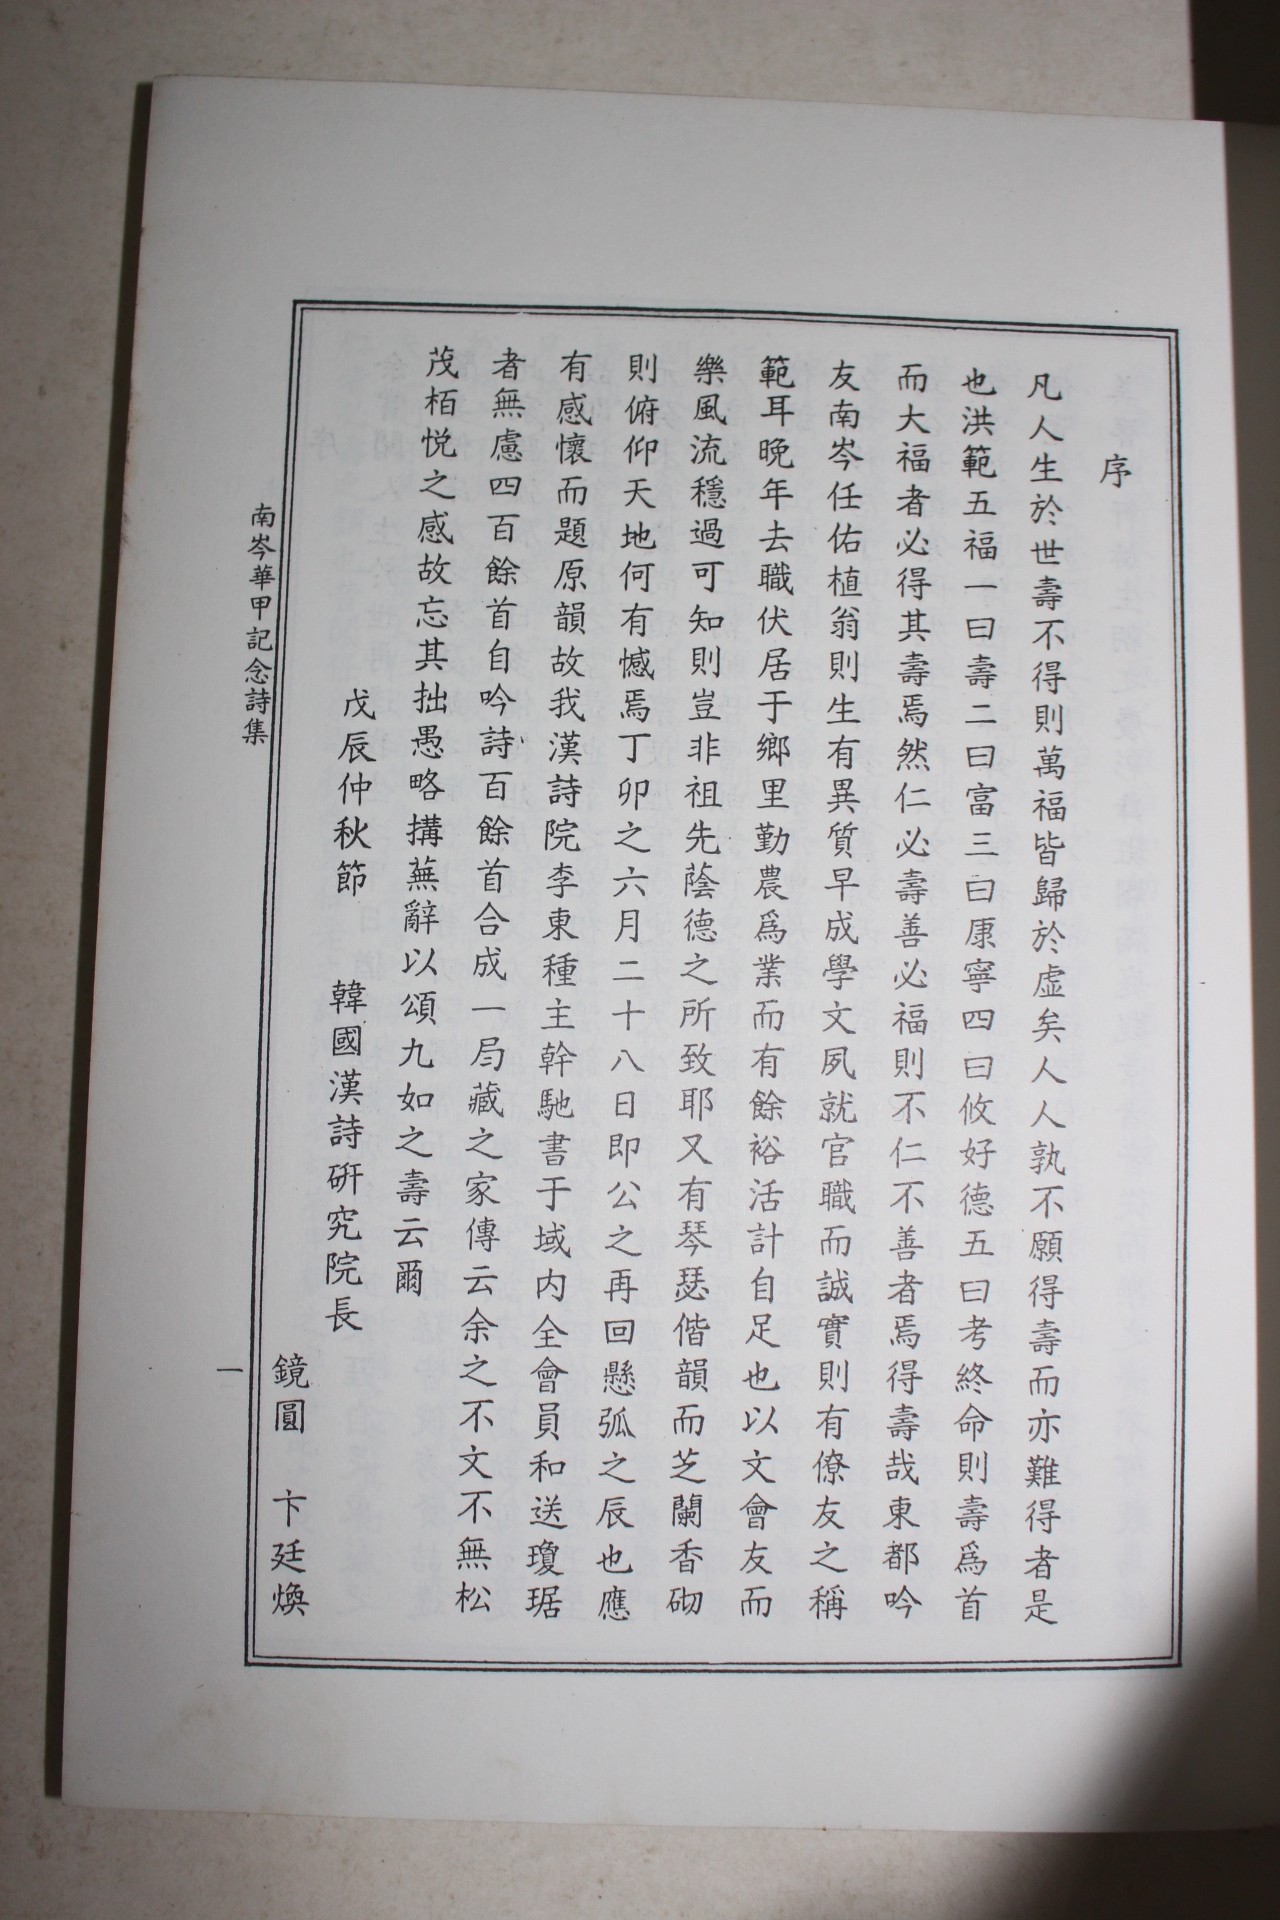 序
凡人生於世壽不得則萬福皆歸於虛矣人人孰不願得壽而亦難得者是
也洪範五福一曰壽二曰富三曰康寧四曰攸好德五曰考終命則壽爲首
而大福者必得其壽焉然仁必壽善必福則不仁不善者焉得壽哉東都吟
友南岑任佑植翁則生有異質早成學文夙就官職而誠實則有僚友之稱
範耳晩年去職伏居于鄉里勤農爲業而有餘裕活計自足也以文會友而
樂風流穩過可知則豈非祖先蔭德之所致耶又有琴瑟偕韻而芝蘭香砌
則俯仰天地何有憾焉丁卯之六月二十八日即公之再回懸弧之辰也應
有感懷而題原韻故我漢詩院李東種主幹馳書于域内全會員和送瓊琚
者無慮四百餘首自吟詩百餘首合成一局藏之家傳云余之不文不無松
茂栢悅之感故忘其拙愚略搆蕪辭以頌九如之壽云爾
戊辰仲秋節 韓國漢詩硏究院長
鏡圓 卞廷煥
南岑華甲記念詩集
一